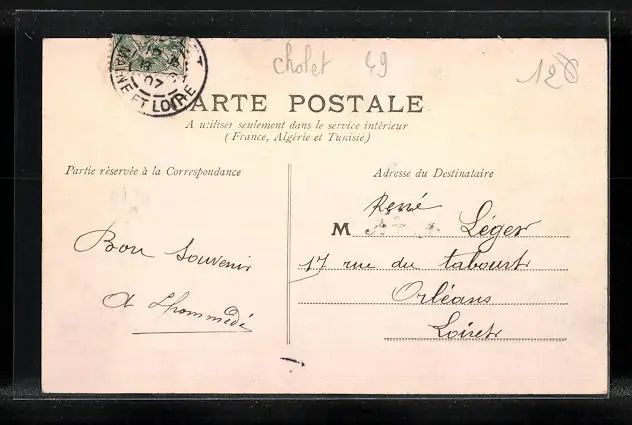 cholet 49
120
MAINE ET LOIRE
07
CARTE POSTALE
A utiliser seulement dans le service intérieur
(France, Algérie et Tunisie)
Partie réservée à la Correspondance
Adresse du Destinataire
René
M Léger
17 rue du tabourt
Orléans
Loiret
Bon Souvenir
A Lhommédé